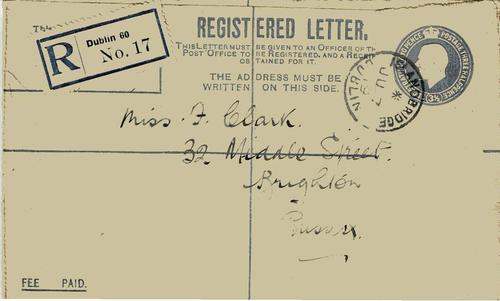 REGISTERED LETTER.
THIS LETTER MUST BE GIVEN TO AN OFFICER OF THE
POST OFFICE TO BE REGISTERED, AND A RECEIPT
OBTAINED FOR IT.
THE ADDRESS MUST BE
WRITTEN ON THIS SIDE.
R
Dublin 60
No. 17
ISLANDBRIDGE
DUBLIN
Miss. F. Clark.
32 Middle Street.
Brighton
Sussex.
FEE PAID.